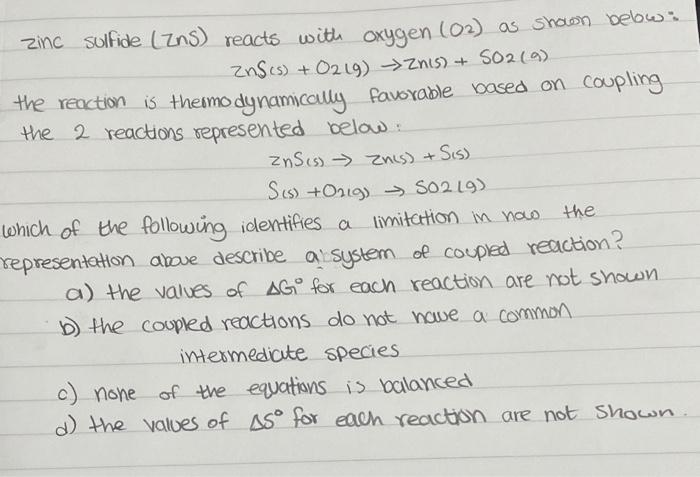 zinc sulfide (ZnS) reacts with oxygen (O2) as shown below:
ZnS(s) + O2(g) → Zn(s) + SO2(g)
the reaction is thermodynamically favorable based on coupling
the 2 reactions represented below:
ZnS(s) → Zn(s) + S(s)
S(s) + O2(g) → SO2(g)
which of the following identifies a limitation in how the
representation above describe a system of coupled reaction?
a) the values of ΔG° for each reaction are not shown
b) the coupled reactions do not have a common
intermediate species
c) none of the equations is balanced
d) the values of ΔS° for each reaction are not shown.